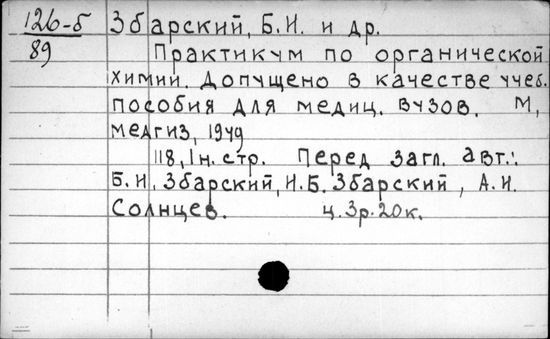 126-б Збарский, Б.И. и др.
89 Практикум по органической
химии. Допущено в качестве учеб.
пособия для медиц. вузов. М,
медгиз, 1949
118, 1 н. стр. Перед загл. авт.:
Б.И. Збарский, И.Б. Збарский, А.И.
Солнцев. ц. 3р. 20к.